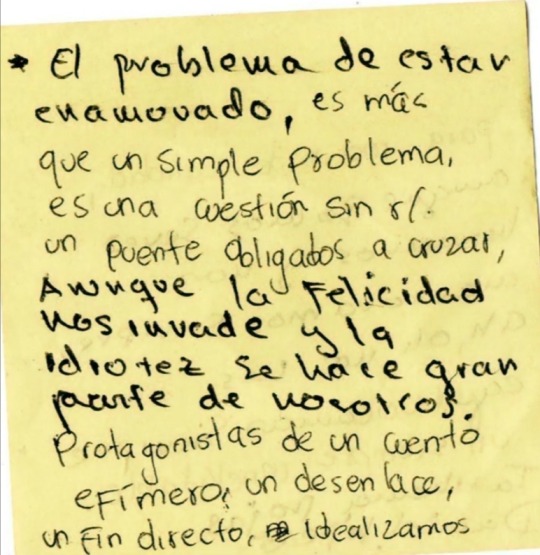 * El problema de estar
enamorado, es más
que un simple problema,
es una cuestión sin r/.
un puente obligados a cruzar,
Aunque la felicidad
nos invade y la
idiotez se hace gran
parte de nosotros.
Protagonistas de un cuento
efímero, un desenlace,
un fin directo, idealizamos